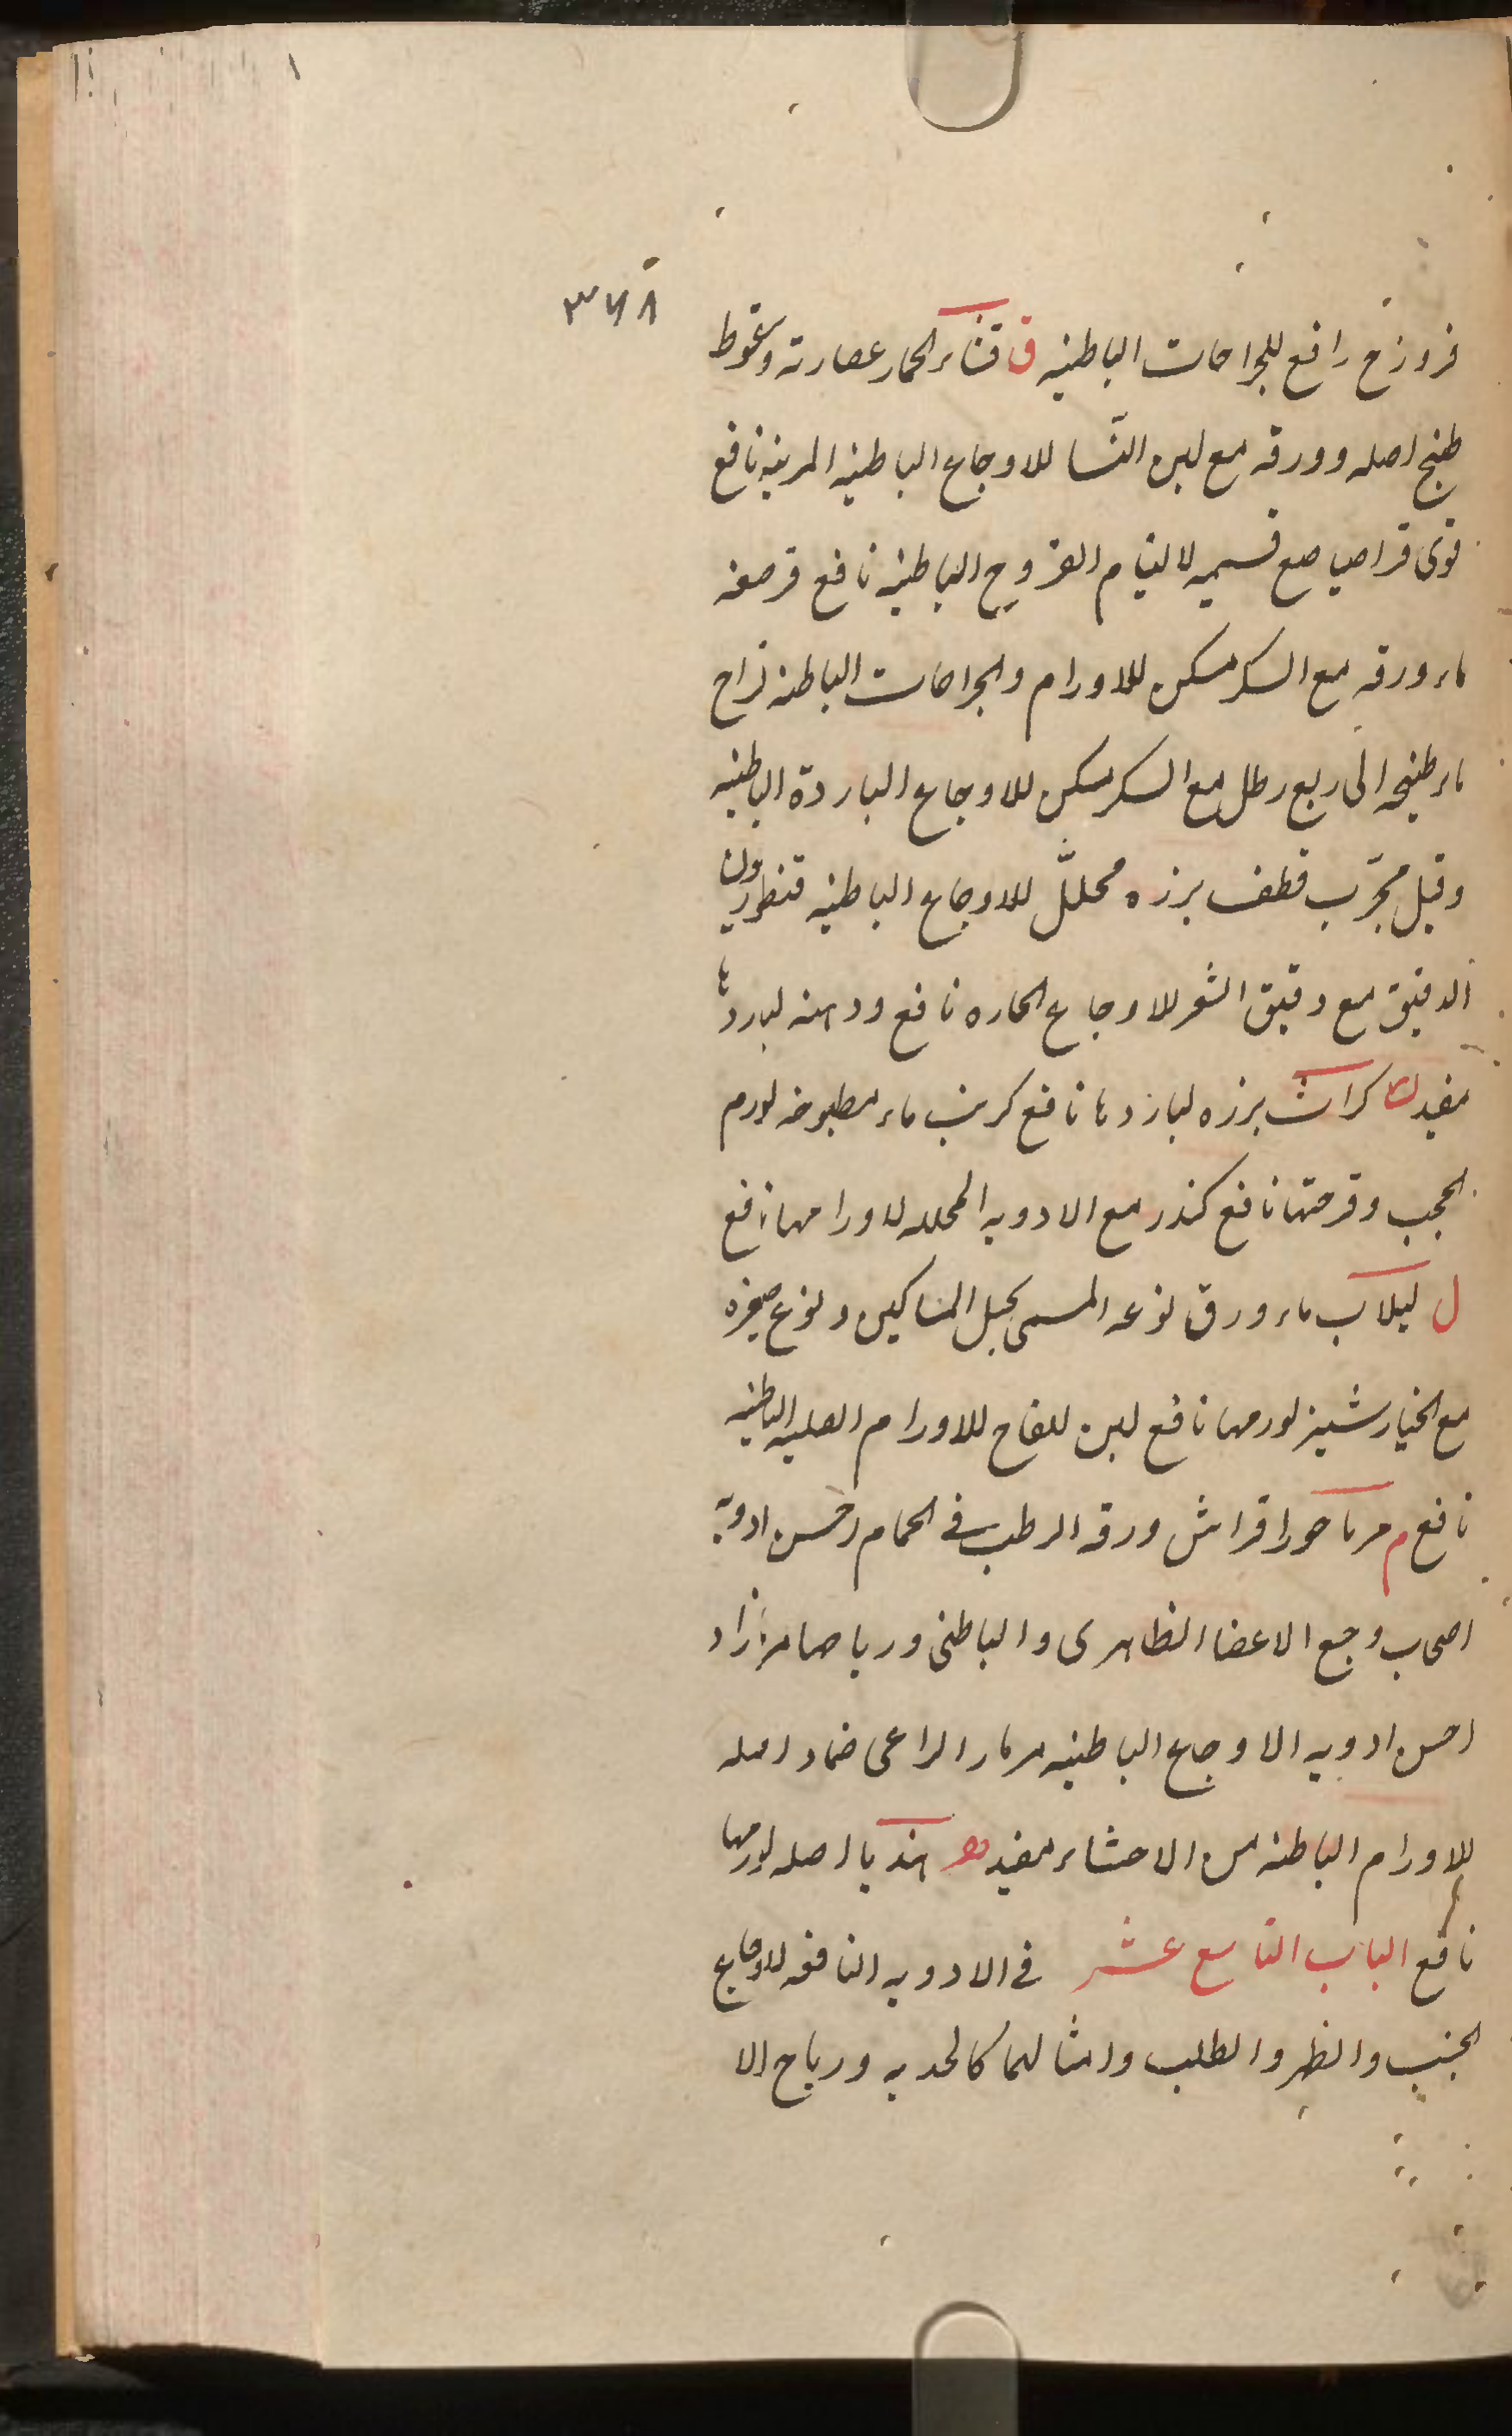 ٣٧٨
فروزج رافع للجراحات الباطنيه ق قثاء الحمار عصارته وسعوط
طبخ اصله وورقه مع لبن النسا للاوجاع الباطنيه المزمنه نافع
قوى قراصيا صمغ قسميه لالتيام القروح الباطنيه نافع قرصعنه
ماء ورقه مع السكر مسكن للاورام والجراحات الباطنه
ماء طبخه الى ربع رطل مع السكر مسكن للاوجاع الباردة الباطنيه
وقيل مجرّب قطف بزره محلّل للاوجاع الباطنيه قنطوريون
الدقيق مع دقيق الشعر للاوجاع الحاره نافع ودهنه لباردها
مفيد ك كراث بزره لباردها نافع كرنب ماء مطبوخه لورم
الحجب وقرحتها نافع كندر مع الادويه المحلله لاورامها نافع
ل لبلاب ماء ورق نوعه المسمى بحبل المساكين ونوع صغيره
مع الخيارشنبر لورمها نافع لبن اللقاح للاورام الصلبه الباطنيه
نافع م مرماحور افراش ورقه الرطب فى الحمام احسن ادوية
اصحاب وجع الاعضا الظاهرى والباطنى ورياضا مرازاد
احسن ادويه الاوجاع الباطنيه مزمار الراعى ضماد اصله
للاورام الباطنه من الاحشاء مفيد ه هندبا اصله لورمها
نافع الباب التاسع عشر فى الادويه النافعه للاوجاع
الجنب والظهر والصلب وامثالهما كالحدبه ورياح الا